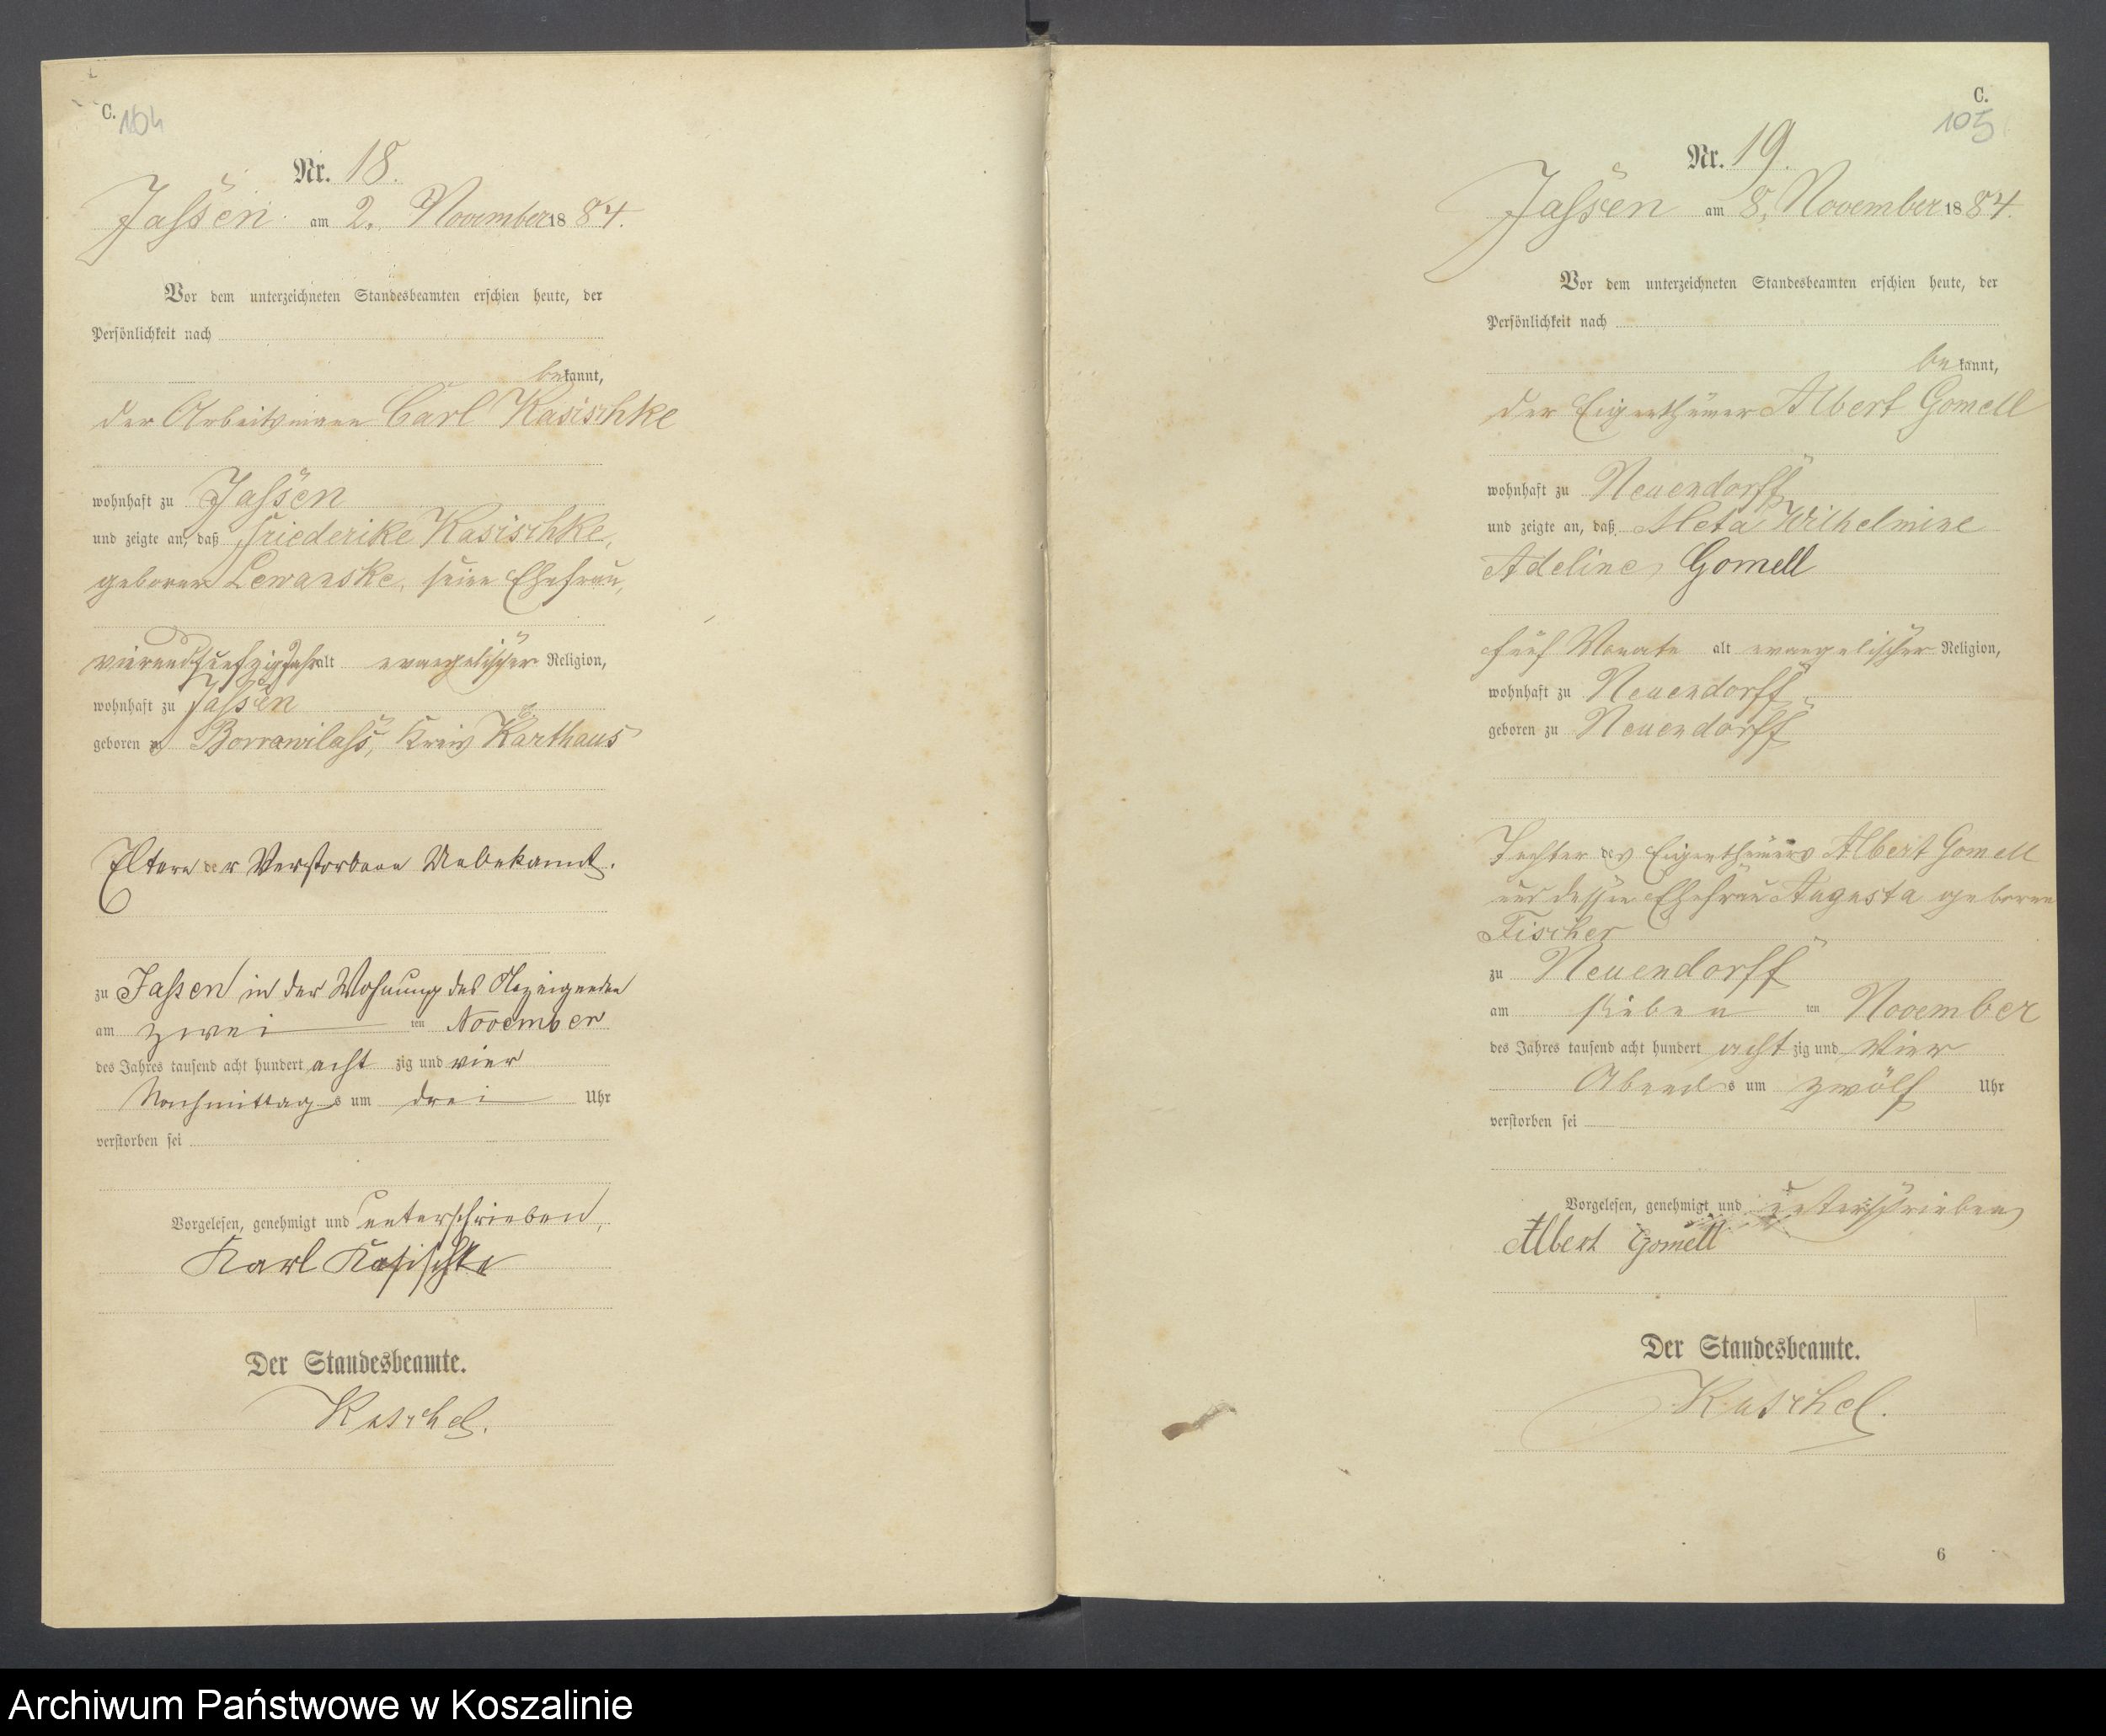 C.
104
Nr. 18.
Jassen am 2. November 1884.
Vor dem unterzeichneten Standesbeamten erschien heute, der
Persönlichkeit nach
bekannt,
der Arbeitsmann Carl Kasischke
wohnhaft zu Jassen
und zeigte an, daß Friederike Kasischke,
geborene Lewanske, seine Ehefrau,
vierundfünfzig Jahr alt evangelischer Religion,
wohnhaft zu Jassen
geboren zu Borrawilass, Kreis Karthaus
Eltern der Verstorbene Unbekannt.
zu Jassen in der Wohnung des Anzeigenden
am zwei ten November
des Jahres tausend acht hundert acht zig und vier
Nachmittags um drei Uhr
verstorben sei
Vorgelesen, genehmigt und unterschrieben,
Karl Kasischke
Der Standesbeamte.
Kuschel.
C.
105
Nr. 19.
Jassen am 8. November 1884.
Vor dem unterzeichneten Standesbeamten erschien heute, der
Persönlichkeit nach
bekannt,
der Eigenthümer Albert Gomell
wohnhaft zu Neuendorff
und zeigte an, daß Meta Wilhelmine
Adeline Gomell
fünf Monate alt evangelischer Religion,
wohnhaft zu Neuendorff
geboren zu Neuendorff
Tochter des Eigenthümers Albert Gomell
und dessen Ehefrau Augusta geborene
Fischer
zu Neuendorff
am sieben ten November
des Jahres tausend acht hundert acht zig und Vier
Abends um zwölf Uhr
verstorben sei
Vorgelesen, genehmigt und unterschrieben
Albert Gomell
Der Standesbeamte.
Kuschel.
6
Archiwum Państwowe w Koszalinie